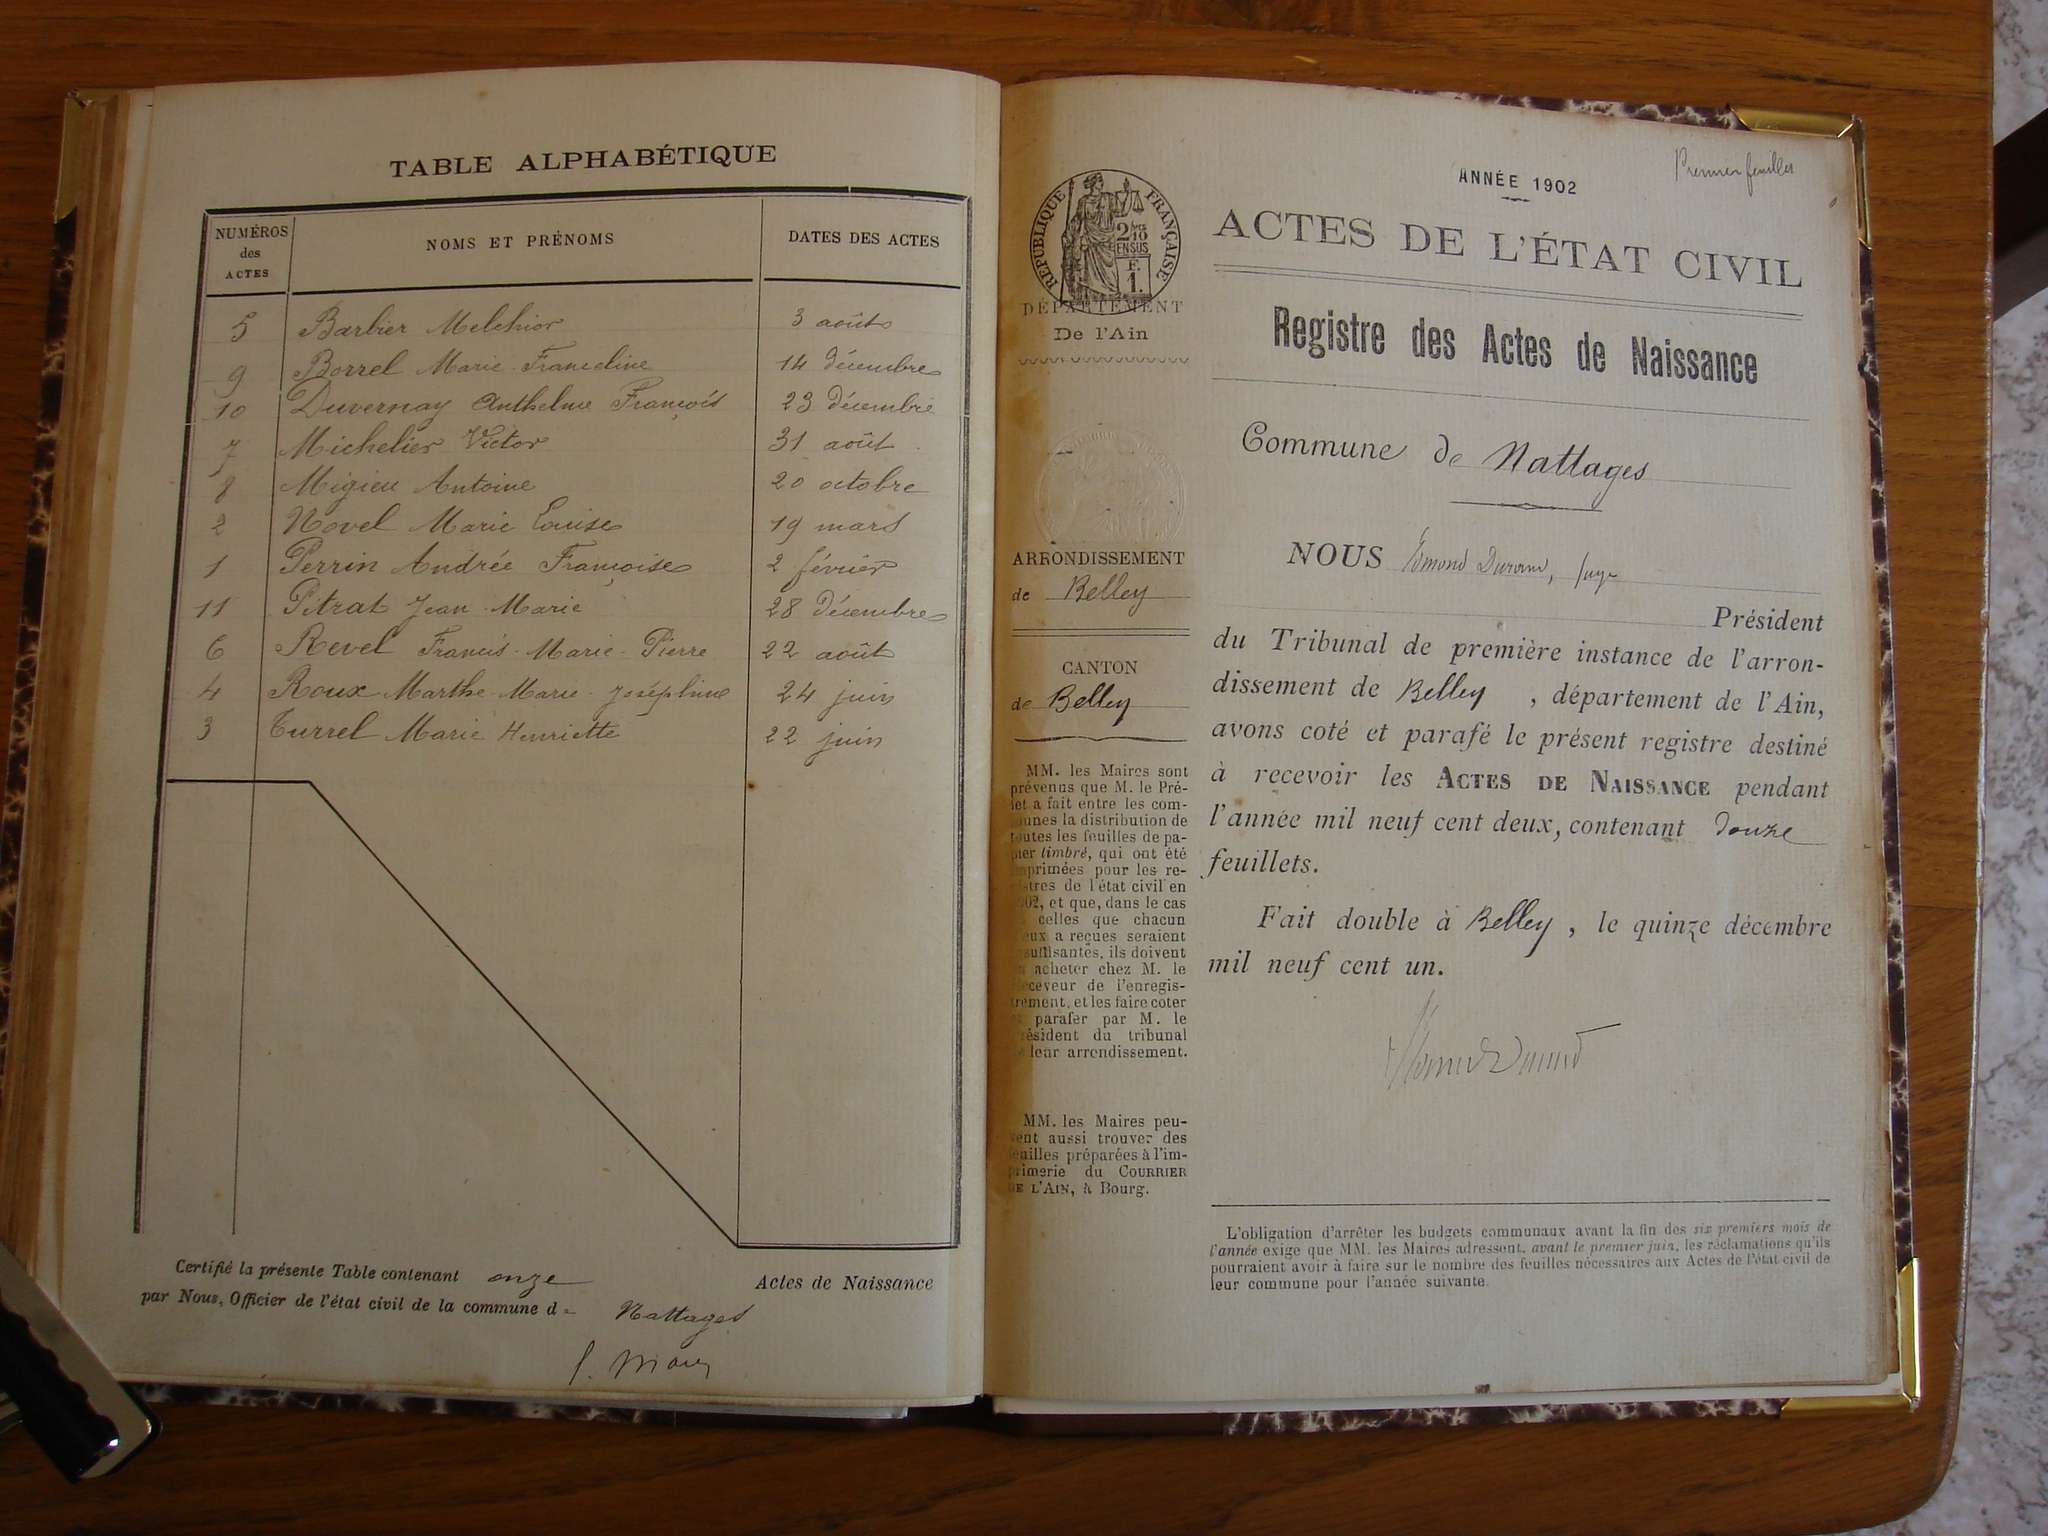 TABLE ALPHABÉTIQUE
NUMÉROS des ACTES NOMS ET PRÉNOMS DATES DES ACTES
5 Barbier Melchior 3 août
9 Borrel Marie Franceline 14 décembre
10 Duvernay Anthelme François 23 décembre
7 Michelier Victor 31 août
8 Migieu Antoine 20 octobre
2 Novel Marie Louise 19 mars
1 Perrin Andrée Françoise 2 février
11 Pitrat Jean Marie 28 décembre
6 Revel Francis-Marie-Pierre 22 août
4 Roux Marthe-Marie-Joséphine 24 juin
3 Turrel Marie Henriette 22 juin
Certifié la présente Table contenant onze Actes de Naissance
par Nous, Officier de l'état civil de la commune d= Nattages
Premier feuillet
ANNÉE 1902
RÉPUBLIQUE FRANÇAISE
2/10 EN SUS
F. 1.
DÉPARTEMENT
De l'Ain
ARRONDISSEMENT
de Belley
CANTON
de Belley
MM. les Maires sont
prévenus que M. le Pré-
fet a fait entre les com-
munes la distribution de
toutes les feuilles de pa-
pier timbré, qui ont été
imprimées pour les re-
gistres de l'état civil en
1902, et que, dans le cas
où celles que chacun
d'eux a reçues seraient
insuffisantes, ils doivent
en acheter chez M. le
receveur de l'enregis-
trement, et les faire coter
et parafer par M. le
président du tribunal
de leur arrondissement.
MM. les Maires peu-
vent aussi trouver des
feuilles préparées à l'im-
primerie du COURRIER
DE L'AIN, à Bourg.
ACTES DE L'ÉTAT CIVIL
Registre des Actes de Naissance
Commune de Nattages
NOUS Edmond Durand, juge
Président
du Tribunal de première instance de l'arron-
dissement de Belley, département de l'Ain,
avons coté et parafé le présent registre destiné
à recevoir les ACTES DE NAISSANCE pendant
l'année mil neuf cent deux, contenant douze
feuillets.
Fait double à Belley, le quinze décembre
mil neuf cent un.
L'obligation d'arrêter les budgets communaux avant la fin des six premiers mois de
l'année exige que MM. les Maires adressent, avant le premier juin, les réclamations qu'ils
pourraient avoir à faire sur le nombre des feuilles nécessaires aux Actes de l'état civil de
leur commune pour l'année suivante.